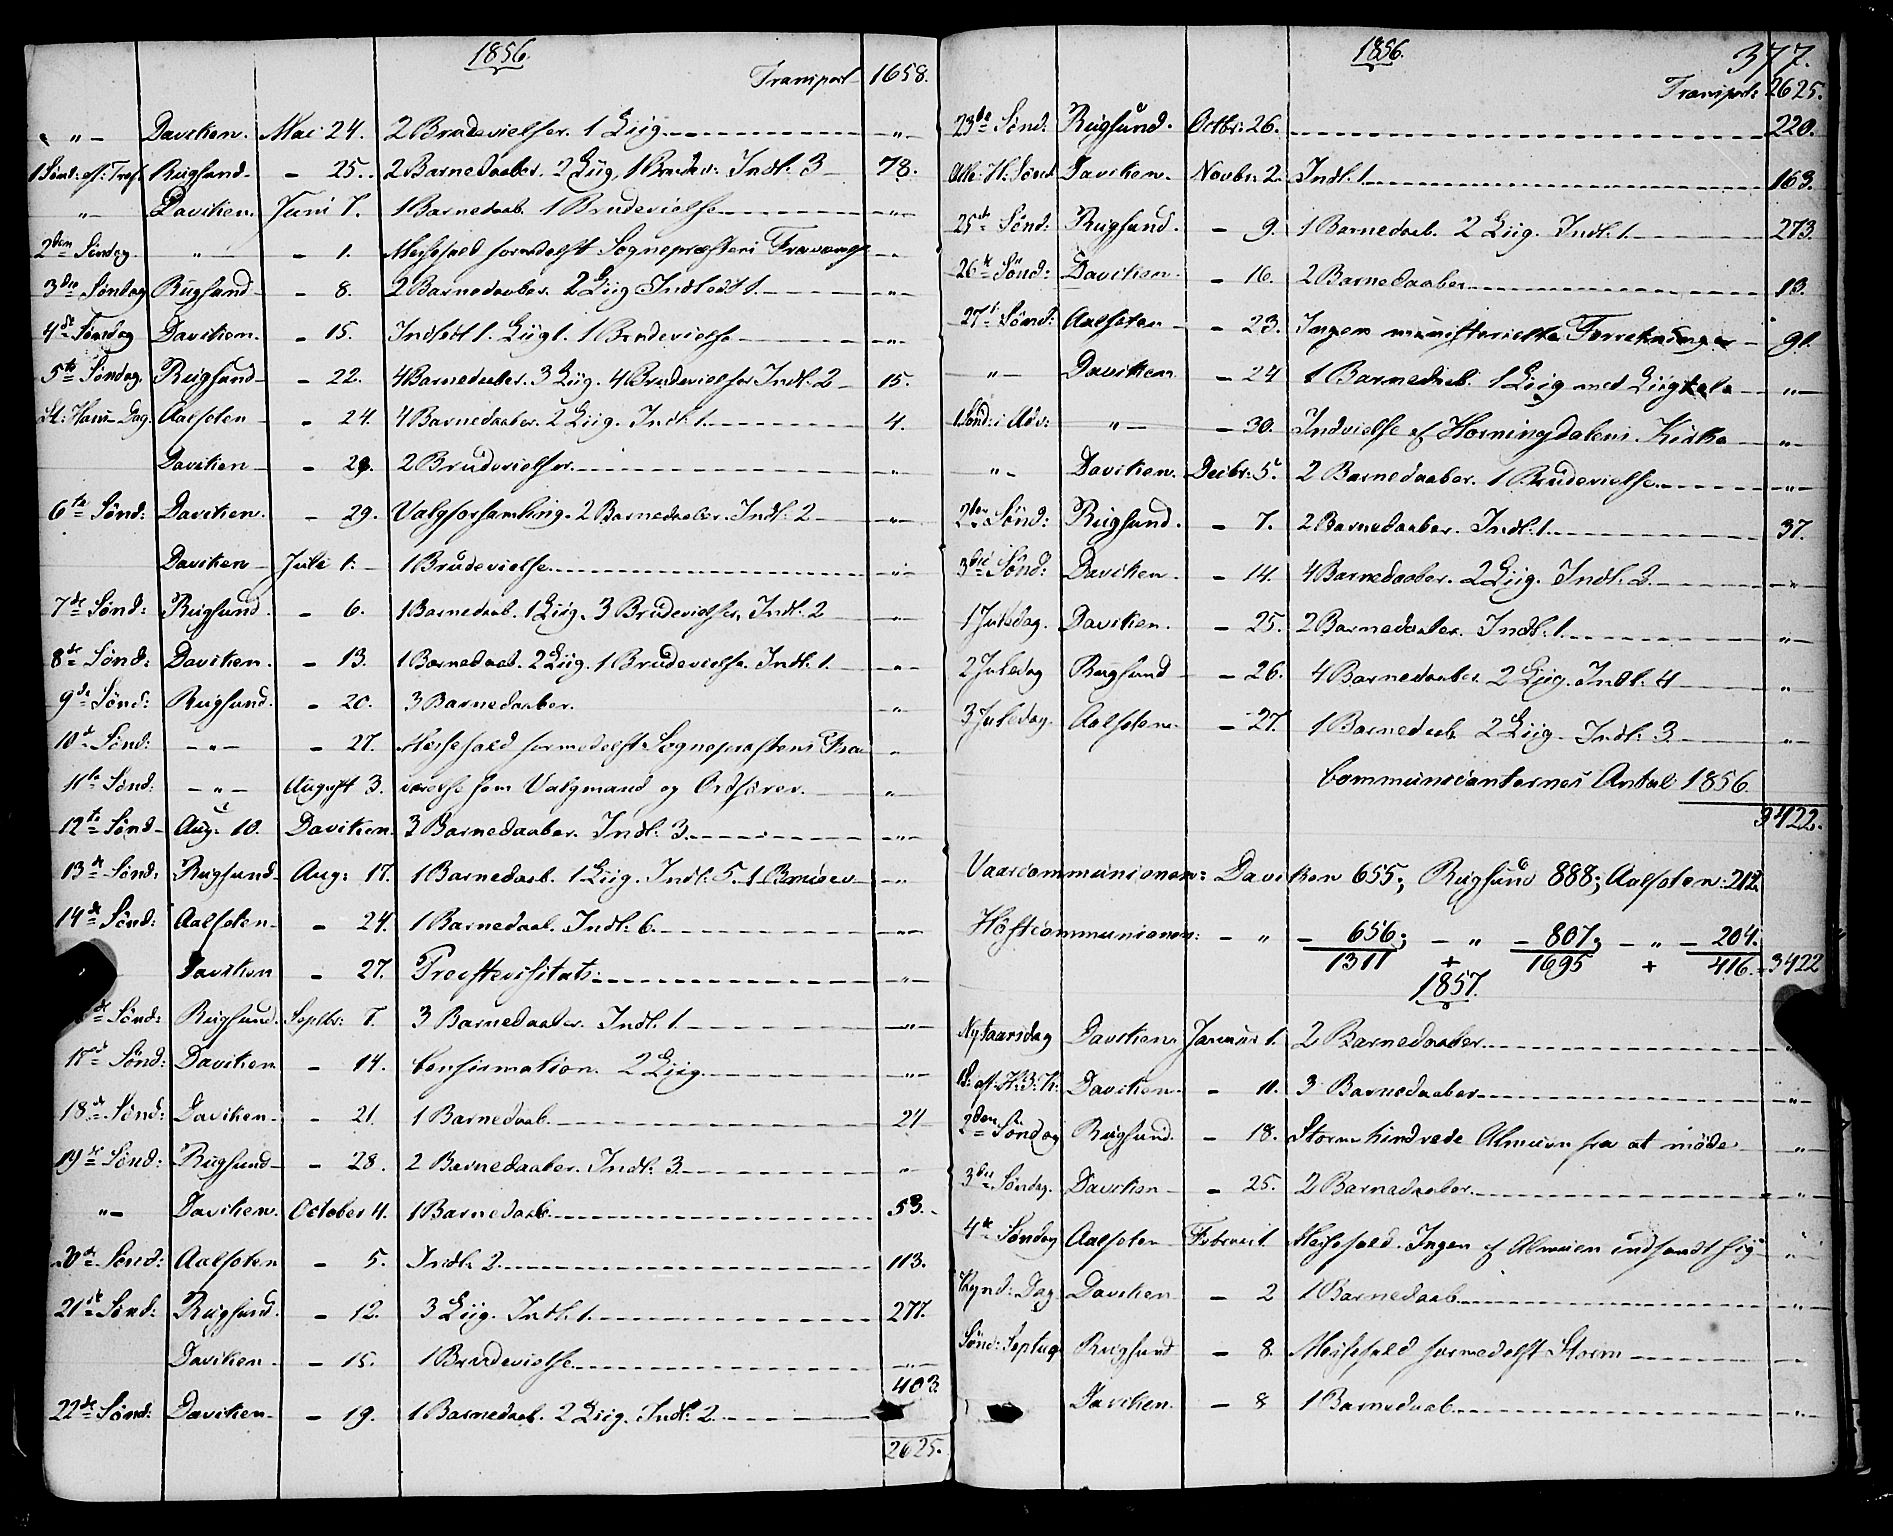 1856.
Transport 1658.
" Daviken. Mai 24. 2 Brudevielser. 1 Liig "
1 Sönd: ef: Tref. Rugsund - 25. 2 Barnedaaber. 2 Liig, 1 Brudev: Indl: 3 78.
" Daviken. Juni 7. 1 Barnedaab. 1 Brudevielse "
2den Söndag " - 1. Messefald formedelst Sognepræstens Fravær "
3die Söndag Rugsund - 8. 2 Barnedaaber. 2 Liig Indledt 1. "
4de Söndag Daviken. - 15. Indledt 1. Liig 1. 1 Brudevielse "
5te Söndag. Rugsund - 22. 4 Barnedaaber. 3 Liig. 4 Brudevielser Indl: 2 15.
St: Hans Dag. Aalfoten - 24. 4 Barnedaaber. 2 Liig. Indl: 1. 4.
Daviken - 29. 2 Brudevielser. "
6te Sönd: Daviken. - 29. Valgforsamling. 2 Barnedaaber. Indl: 2 "
Daviken Juli 1. 1 Brudevielse. "
7de Sönd: Rugsund. - 6. 1 Barnedaab. 1 Liig. 3 Brudevielser, Indl: 2 "
8de Sönd: Daviken. - 13. 1 Barnedaab. 2 Liig. 1 Brudevielse. Indl: 1. "
9de Sönd: Rugsund. - 20. 3 Barnedaaber. "
10de Sönd: " - 27. Messefald formedelst Sognepræstens Fra "
11te Sönd: " August 3. værelse som Valgmand og Ordförer. "
12te Sönd Aug. 10. Daviken. 3 Barnedaaber. Indl: 3. "
13de Sönd: Rugsund Aug: 17. 1 Barnedaab. 1 Liig. Indl: 5. 1 Brudev "
14de Sönd: Aalfoten - 24. 1 Barnedaab. Indl: 6. "
Daviken - 27. Provstevisitats: "
de Sönd: Rugsund. Septbr: 7. 3 Barnedaaber. Indl: 1. "
17de Sönd: Daviken. - 14. Confirmation. 2 Liig. "
18de Sönd: Daviken. - 21. 1 Barnedaab. 24
19de Sönd: Rugsund - 28. 2 Barnedaaber. Indl: 3. "
" Daviken. October 4. 1 Barnedaab. 53.
20de Sönd: Aalfoten - 5. Indl: 2. 113.
21de Sönd: Rugsund. - 12. 3 Liig. Indl: 1. 277.
Daviken - 15. 1 Brudevielse. "
22de Sönd: Daviken. - 19. 1 Barnedaab. 2 Liig. Indl: 2. 403.
2625.
1856. 377.
Transport: 2625.
23de Sönd: Rugsund. Octbr: 26. 220.
Alle H: Sönd. Daviken. Novbr: 2. Indl: 1. 163.
25de Sönd: Rugsund. - 9. 1 Barnedaab. 2 Liig. Indl: 1. 273.
26de Sönd: Daviken. - 16. 2 Barnedaaber. 13.
27de Sönd: Aalfoten - 23. Ingen ministerielle Forretninger 91.
" Daviken - 24 1 Barnedaab. 1 Liig med Liigtale "
1 Sönd: i Adv: " - 30. Indvielse af Horningdalens Kirke "
" Daviken. Decbr: 5. 2 Barnedaaber. 1 Brudevielse. "
2den Sönd: Rugsund. - 7. 2 Barnedaaber. Indl: 1. 37.
3die Sönd: Daviken. - 14. 4 Barnedaaber. 2 Liig. Indl: 3. "
1 Juledag. Daviken. - 25. 2 Barnedaaber. Indl: 1. "
2 Juledag Rugsund - 26. 4 Barnedaaber. 2 Liig. Indl: 4 "
3 Juledag. Aalfoten. - 27. 1 Barnedaab. 2 Liig. Indl: 3. "
Communicanternes Antal 1856.
3422.
Vaarcommunionen: Daviken 655; Rugsund 888; Aalfoten: 212.
Höstcommunionen: - " - 656; - " - 807; - " - 204.
1311 + 1695 + 416. = 3422
1857.
Nytaarsdag Daviken. Januar 1. 2 Barnedaaber. "
S: ef: H: 3: K: Daviken. - 11. 3 Barnedaaber. "
2den Söndag Rugsund. - 18. Storm hindrede Almuen fra at möde "
3die Söndag. Daviken - 25. 2 Barnedaaber. "
4de Söndag Aalfoten Februar 1. Messefald. Ingen af Almuen indfandt sig "
Kynd: Dag Daviken - 2 1 Barnedaab. "
Sönd: Septug: Rugsund - 8. Messefald formedelst Storm "
Daviken. - 8 1 Barnedaab. "